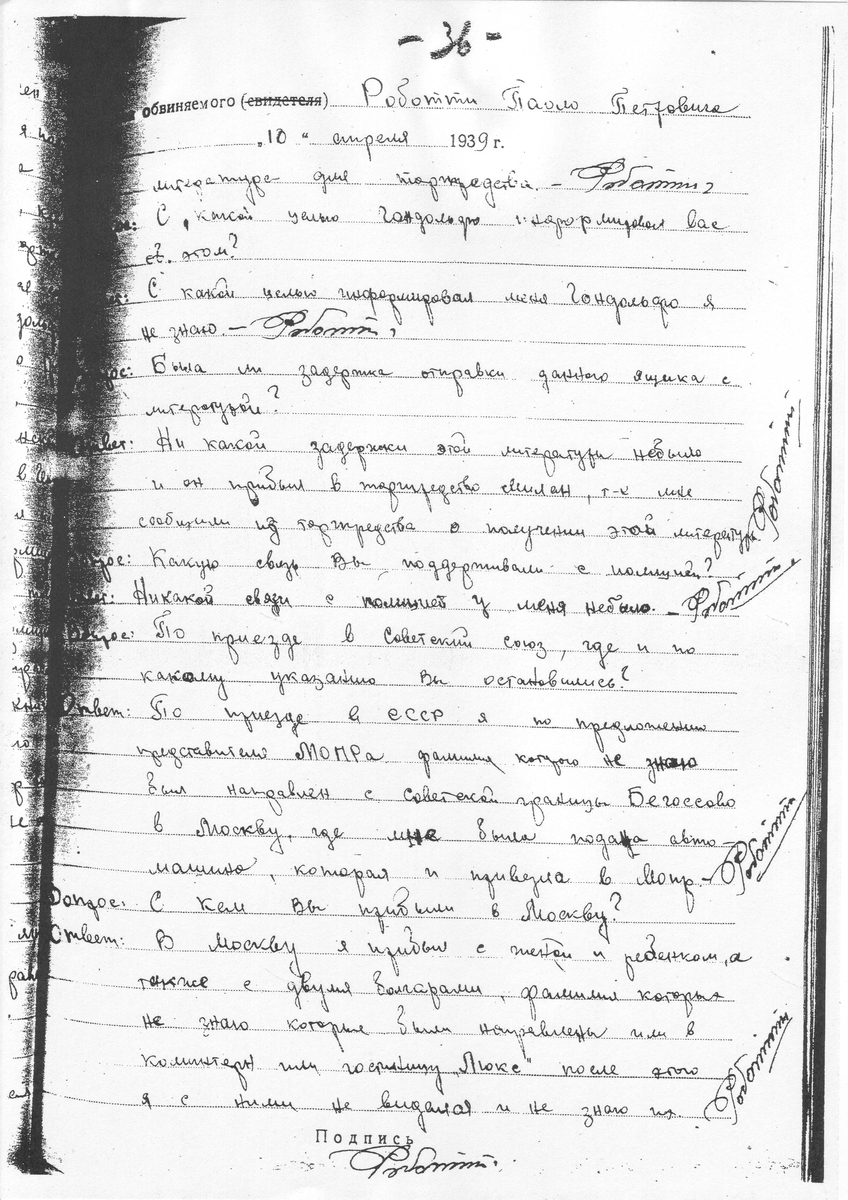 - 36 -
обвиняемого (свидетеля) Роботти Паоло Петровича
„10“ апреля 1939 г.
литературе для торгпредства. – Роботти
С какой целью Гандольфо информировал вас
об этом?
С какой целью информировал меня Гандольфо я
не знаю. – Роботти
Была ли задержка отправки данного ящика с
литературой?
Ответ: Ни какой задержки этой литературы небыло
и он прибыл в торгпредство Милан, т-к мне
сообщили из торгпредства о получении этой литературы. Роботти
Вопрос: Какую связь Вы поддерживали с полицией?
Ответ: Никакой связи с полицией у меня небыло. – Роботти
Вопрос: По приезде в Советский союз, где и по
какому указанию Вы остановились?
Ответ: По приезде в СССР я по предложению
представителя МОПРа фамилия которого не знаю
был направлен с советской границы Негоссово
в Москву, где мне была подана авто
машина, которая и привезла в Мопр – Роботти
Вопрос: С кем Вы прибыли в Москву?
Ответ: В Москву я прибыл с женой и ребенком, а
также с двумя болгарами, фамилия которых
не знаю которые были направлены или в
коминтерн или гостиницу „Люкс“ после этого
я с ними не виделся и не знаю их. Роботти
Подпись
Роботти